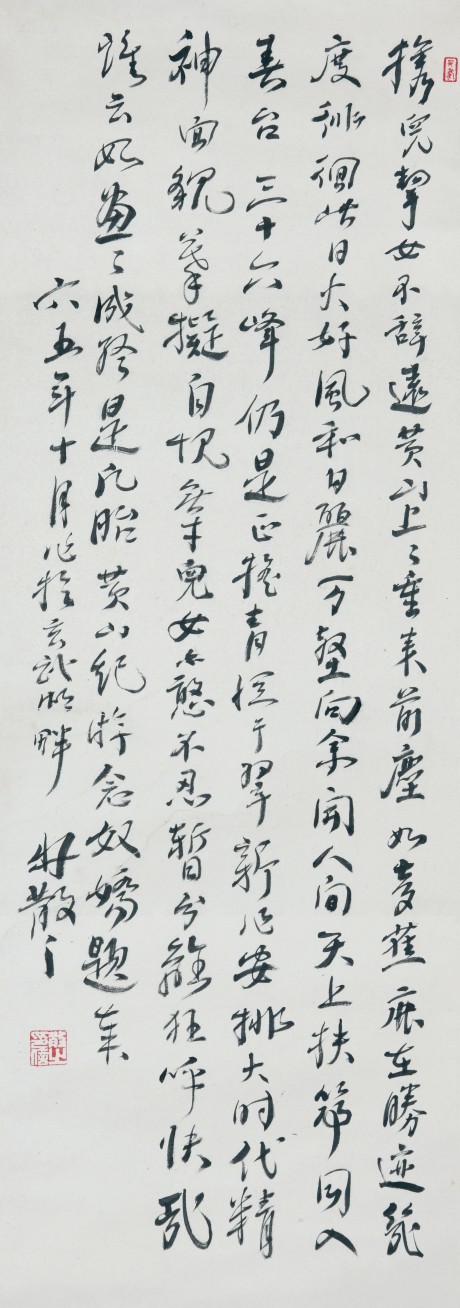 携儿挈女不辞远黄山上〻重来前尘如梦蕉鹿在胜迹几
度徘徊此日大好风和日丽万壑向余开人间天上扶筇同入
春台三十六峰仍是正摇青滉于翠新作安排大时代精
神面貌摹拟自愧无才儿女亦憨不忍暂分离狂呼快哉
谁云如画〻成终是凡胎黄山纪游念奴娇题
六五年十月作于玄武湖畔 林散之